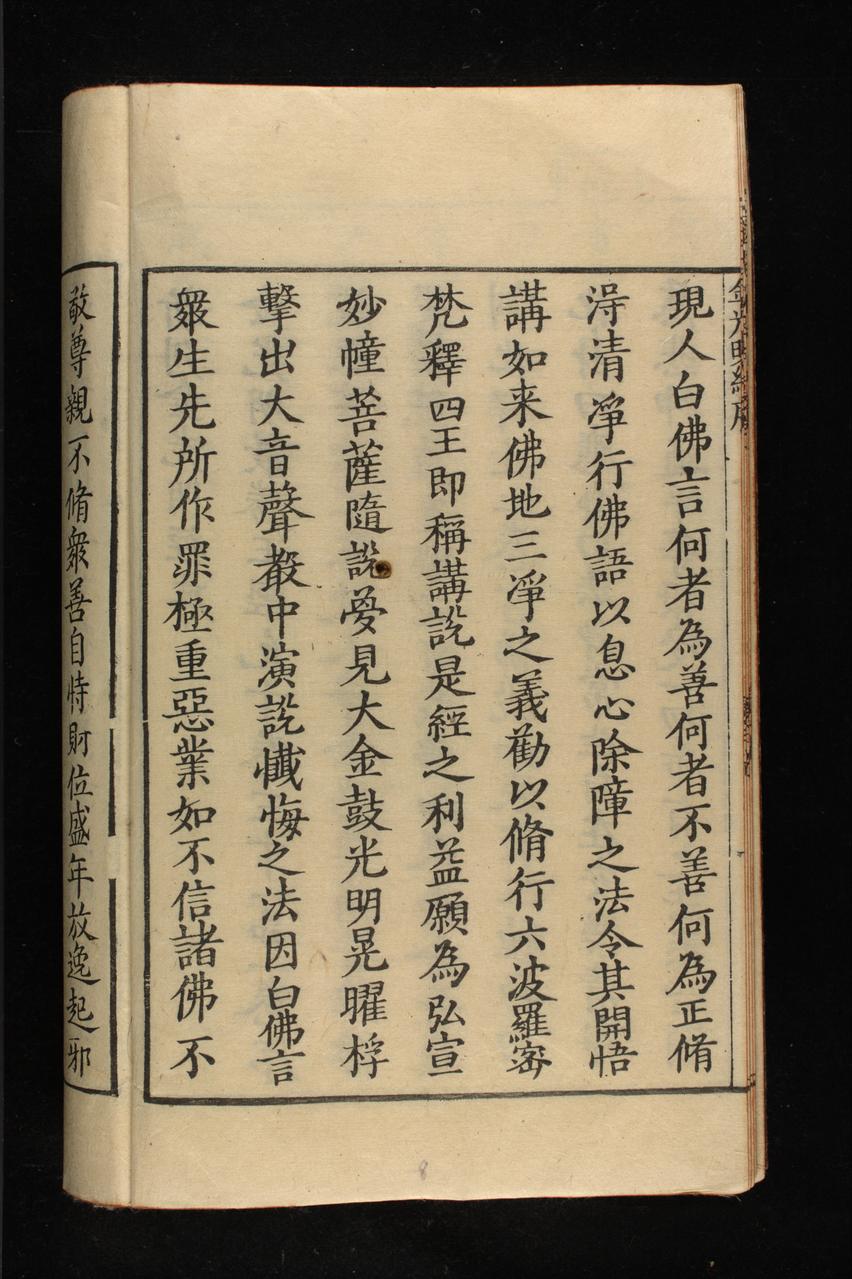 金光明經序
現人白佛言何者為善何者不善何為正脩
淂清淨行佛語以息心除障之法令其開悟
講如来佛地三淨之義勸以脩行六波羅蜜
梵釋四王即稱講説是經之利益願為弘宣
妙幢菩薩隨説夢見大金鼓光明晃曜桴
擊出大音聲聲中演説懺悔之法因白佛言
衆生先所作罪極重惡業如不信諸佛不
敬尊親不脩衆善自恃財位盛年放逸起邪